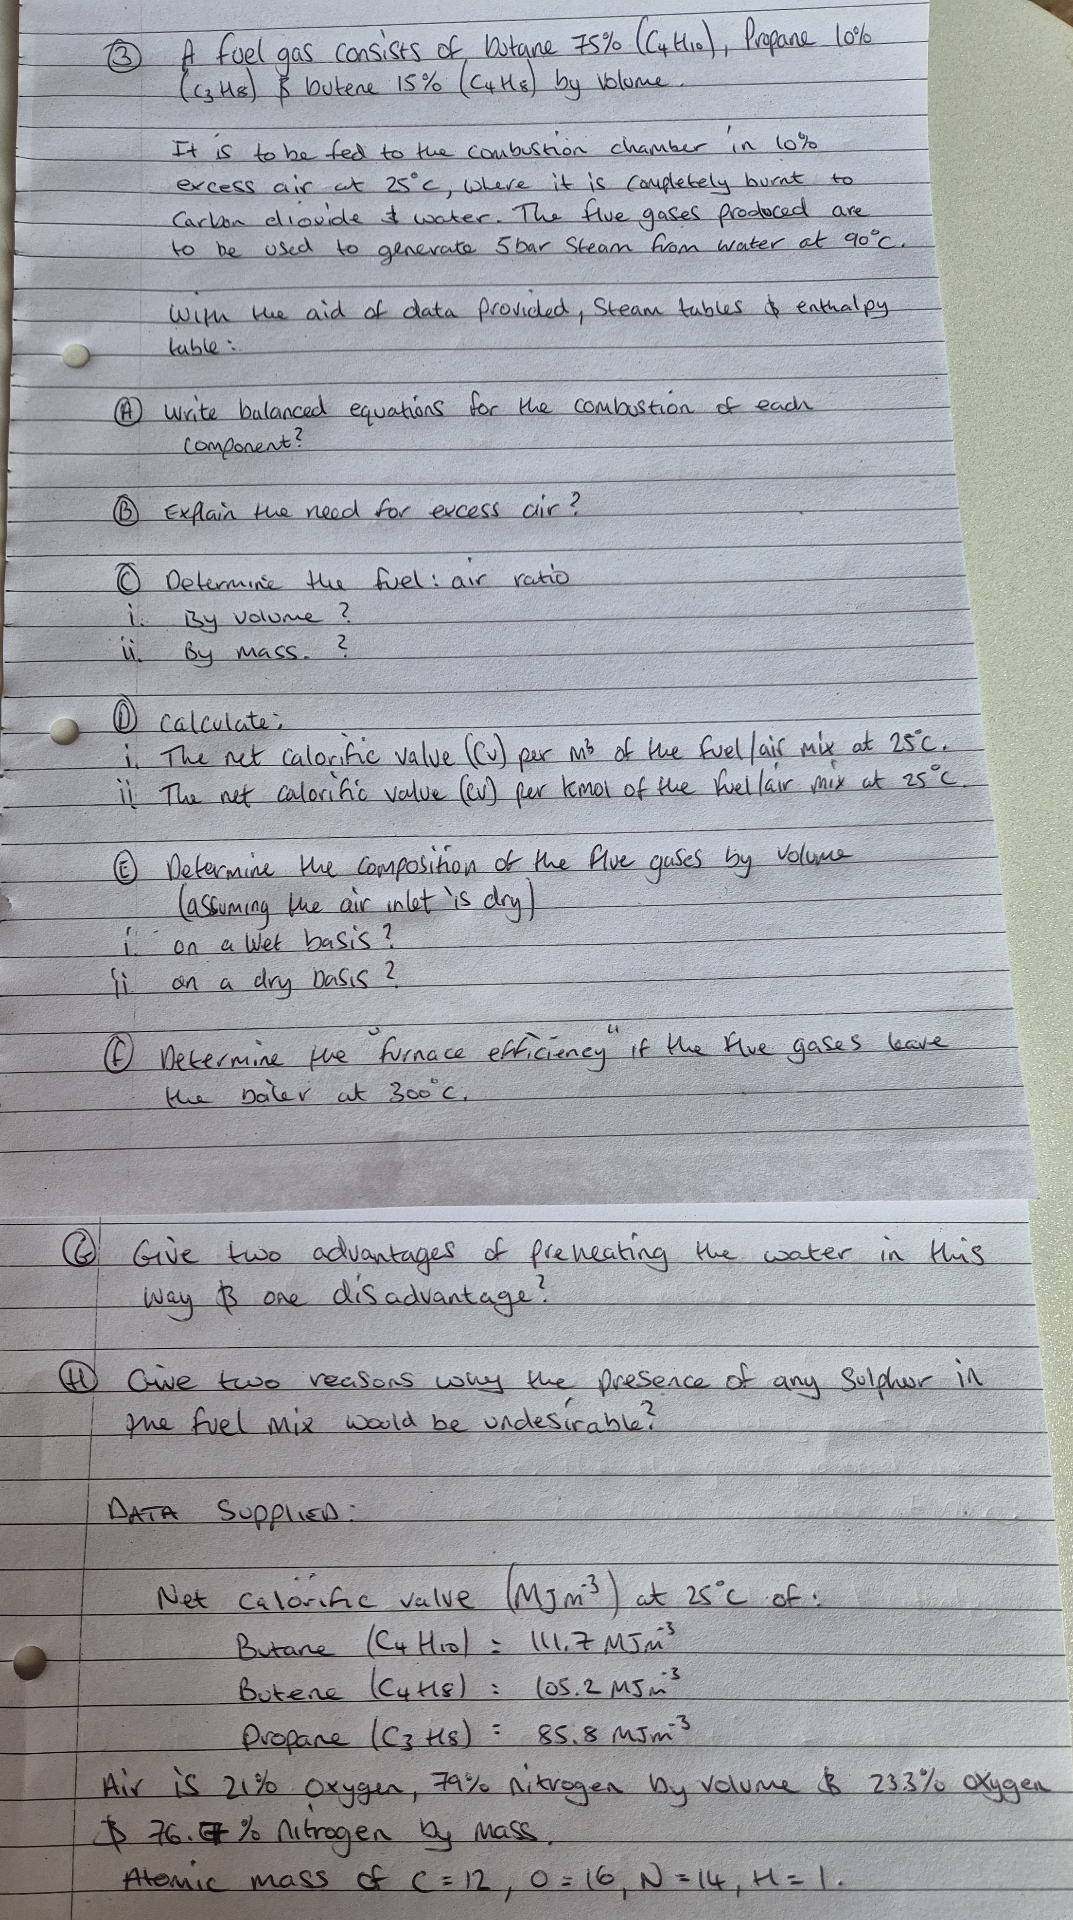 ③ A fuel gas consists of butane 75% (C4H10), Propane 10%
(C3H8) & butene 15% (C4H8) by volume.
It is to be fed to the combustion chamber in 10%
excess air at 25°C, where it is completely burnt to
Carbon dioxide & water. The flue gases produced are
to be used to generate 5bar Steam from water at 90°C.
With the aid of data provided, Steam tables & enthalpy
table:
Ⓐ Write balanced equations for the combustion of each
component?
Ⓑ Explain the need for excess air?
Ⓒ Determine the fuel: air ratio
i. By volume?
ii. By mass. ?
Ⓓ Calculate:
i. The net calorific value (CV) per m³ of the fuel/air mix at 25°C.
ii The net calorific value (CV) per kmol of the fuel/air mix at 25°C.
Ⓔ Determine the composition of the flue gases by volume
(assuming the air inlet is dry)
i. on a wet basis?
ii on a dry basis?
Ⓕ Determine the "furnace efficiency" if the flue gases leave
the boiler at 300°C.
Ⓖ Give two advantages of preheating the water in this
way & one disadvantage?
Ⓗ Give two reasons why the presence of any Sulphur in
the fuel mix would be undesirable?
DATA SUPPLIED:
Net calorific value (MJm⁻³) at 25°C of:
Butane (C4H10) = 111.7 MJm⁻³
Butene (C4H8) = 105.2 MJm⁻³
Propane (C3H8) = 85.8 MJm⁻³
Air is 21% oxygen, 79% nitrogen by volume & 23.3% oxygen
& 76.7% Nitrogen by mass.
Atomic mass of C=12, O=16, N=14, H=1.